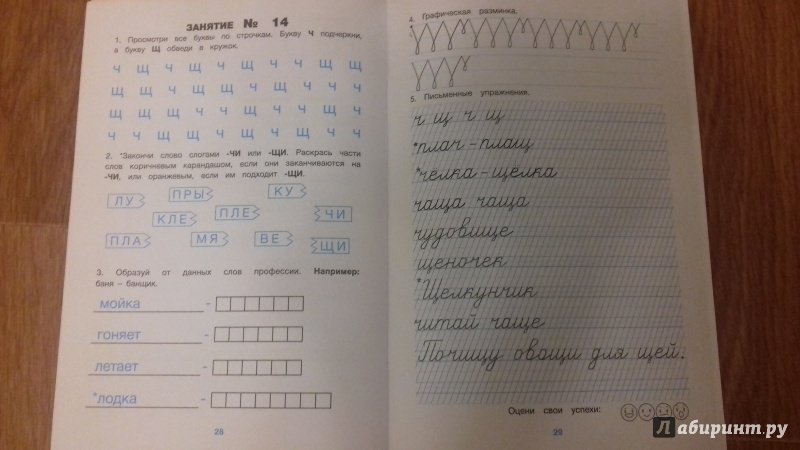 ЗАНЯТИЕ № 14
1. Просмотри все буквы по строчкам. Букву Ч подчеркни,
а букву Щ обведи в кружок.
Ч Щ Ч Щ Ч Щ Ч Щ Ч Ч
Щ Щ Ч Щ Ч Щ Ч Щ Ч Щ
Ч Щ Ч Щ Ч Ч Щ Ч Щ Щ
Ч Ч Щ Щ Ч Щ Ч Щ Ч Ч
2. *Закончи слово слогами -ЧИ или -ЩИ. Раскрась части
слов коричневым карандашом, если они заканчиваются на
-ЧИ, или оранжевым, если им подходит -ЩИ.
ЛУ ПРЫ КУ
КЛЕ ПЛЕ ЧИ
ПЛА МЯ ВЕ ЩИ
3. Образуй от данных слов профессии. Например:
баня – банщик.
мойка -
гоняет -
летает -
*лодка -
28
4. Графическая разминка.
5. Письменные упражнения.
ч щ ч щ
*плач - плащ
*челка - щелка
чаща чаща
чудовище
щеночек
*Щелкунчик
читай чаще
Почищу овощи для щей.
Оцени свои успехи:
29
Лабиринт.ру